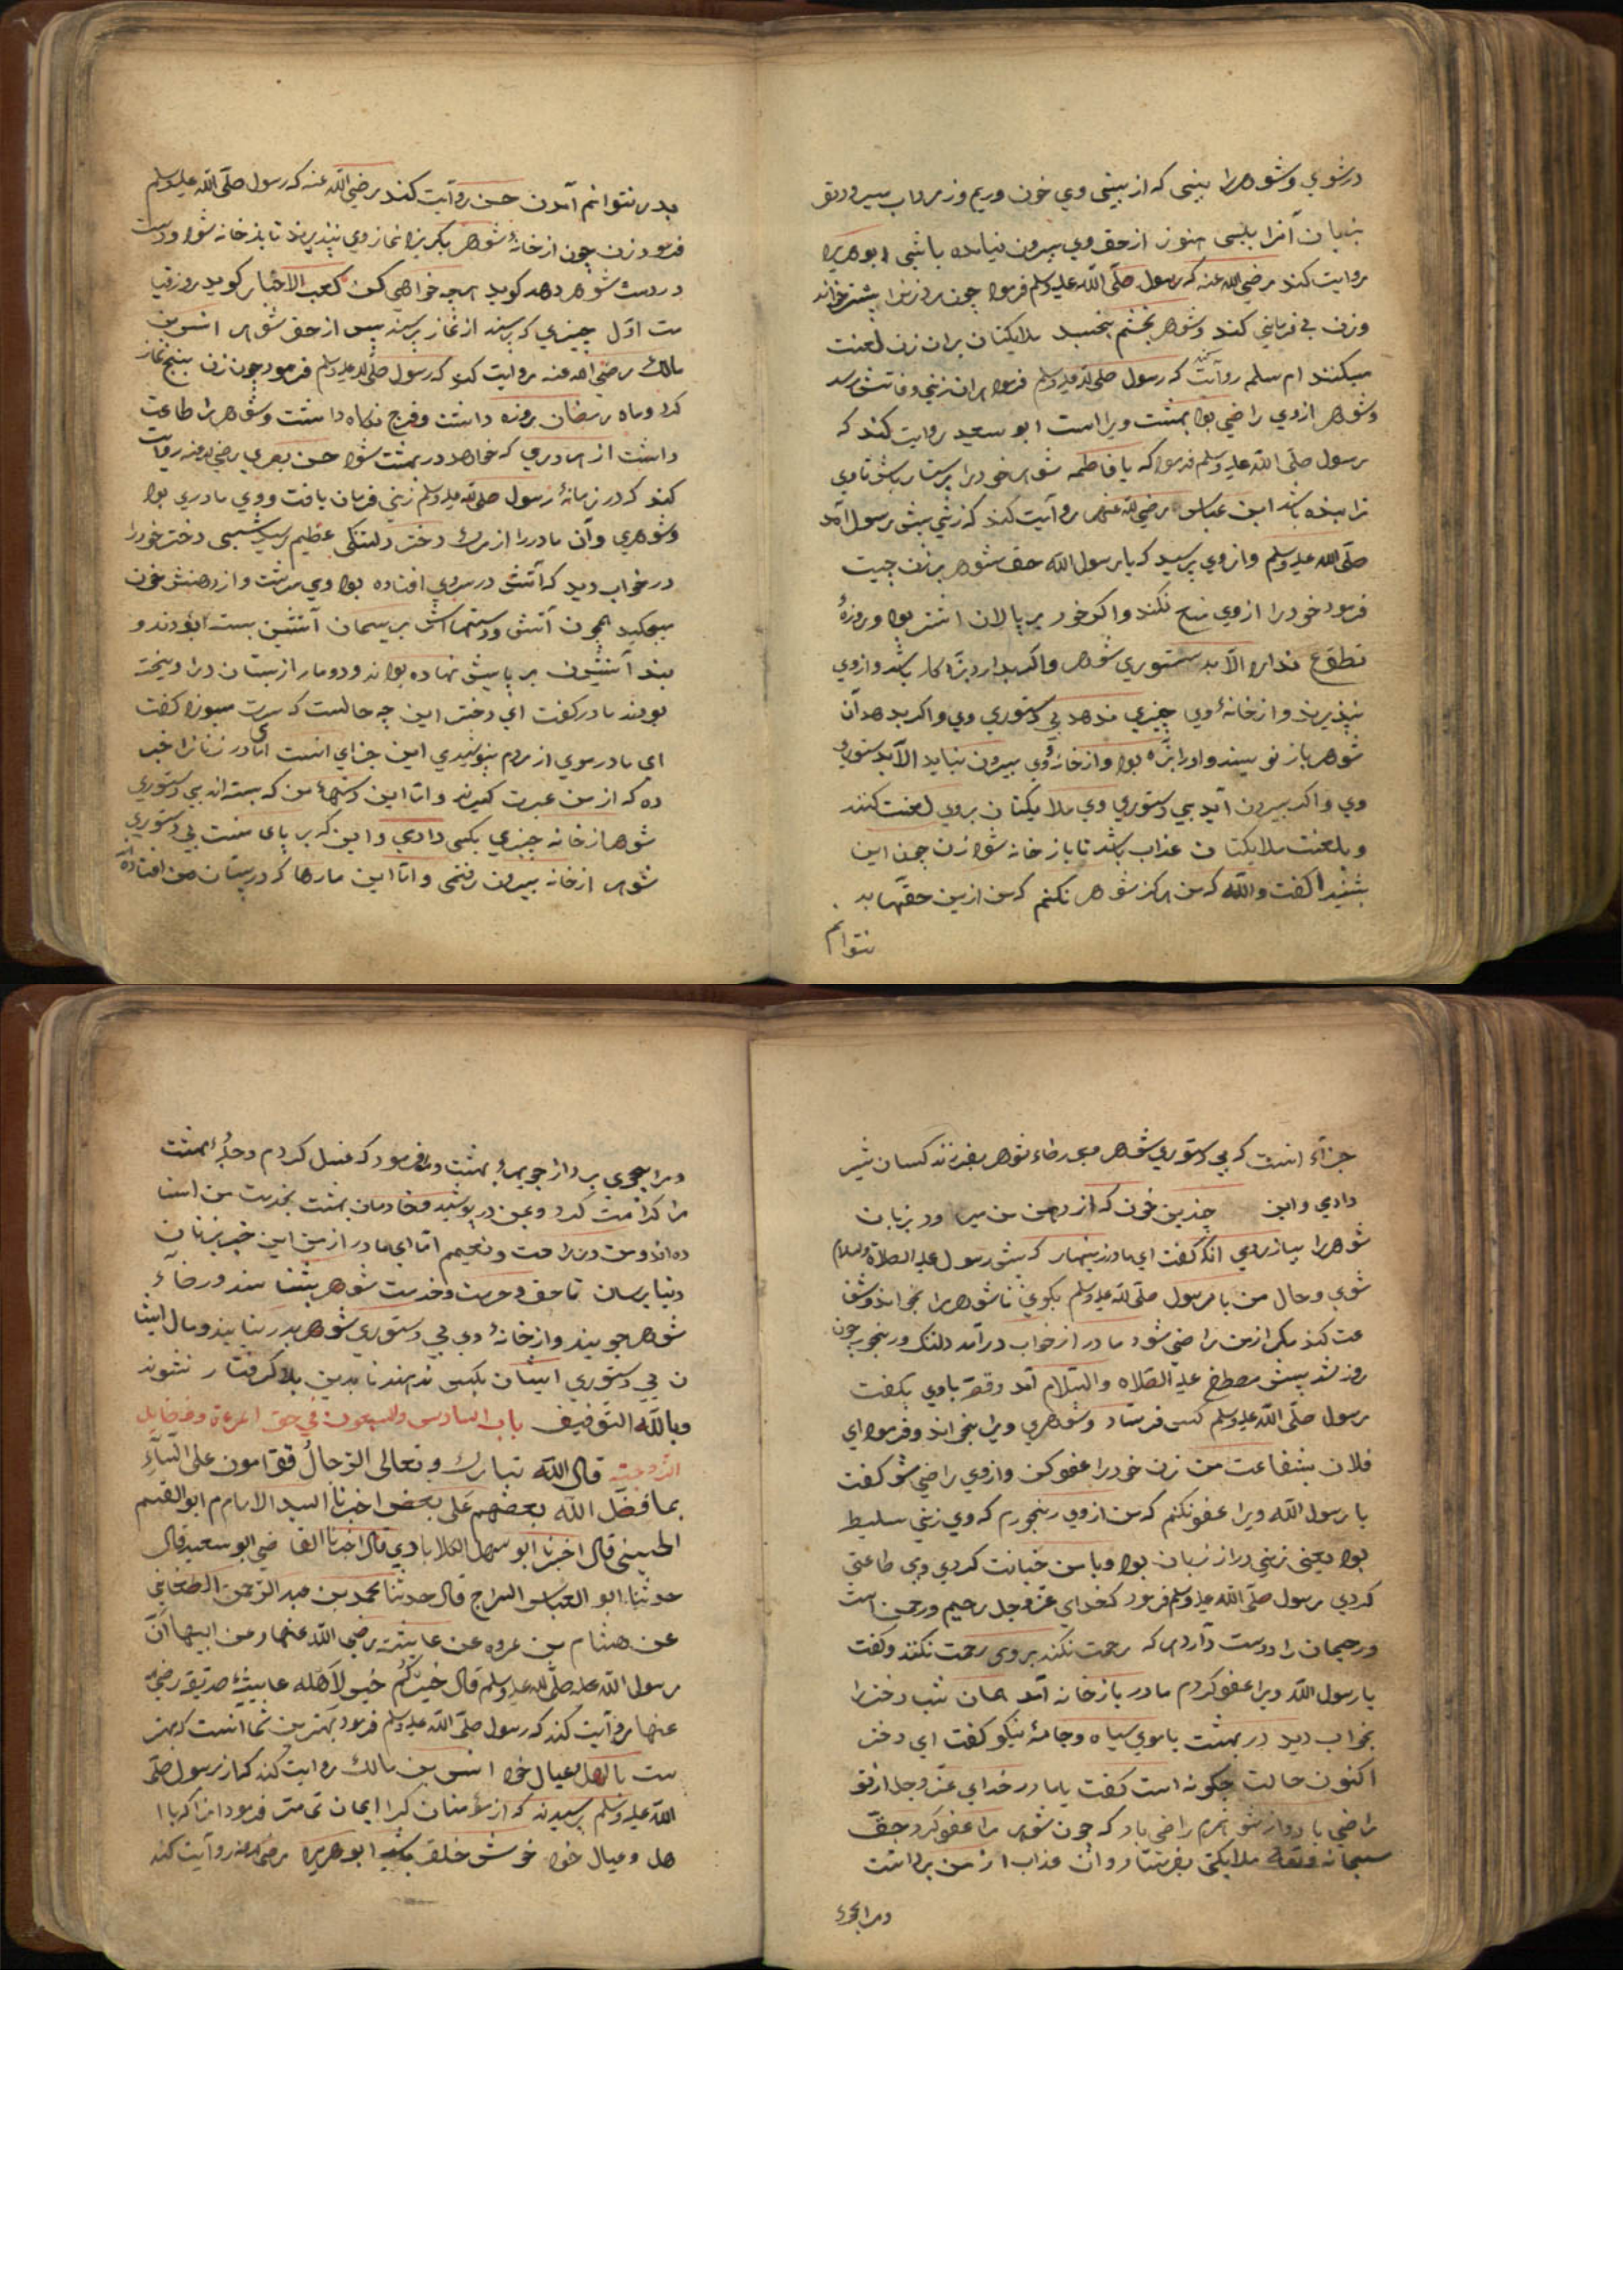 در شوي وشوهررا بيني كه از بيني وي خون وريم وزرداب ميرود وتو
بزبان آنرا بليسى هنوز از حق وي بيرون نيامده باشي ابو هريره
روايت كند رضي الله عنه كه رسول صلّى اللّه عليه وسلم فرمود چون مرد زنرا پيش خواند
وزن بى فرماني كند وشوهر بخشم بخسبد ملايكتان بران زن لعنت
ميكنند ام سلمه روآيت كند كه رسول صلى الله عليه وسلم فرمود هران زني وفاتش رسد
وشوهر ازوي راضي بود بهشت ويراست ابو سعيد روايت كند كه
رسول صلّى اللّه عليه وسلم فرمود كه يا فاطمه شوهر خودرا پرستار باش تا وي
ترا بنده باشد ابن عباس رضي الله عنهما روآيت كند كه زني پيش رسول آمد
صلّى الله عليه وسلم وازوي پرسيد كه يا رسول اللّه حق شوهر بر زن چيست
فرمود خودرا ازوي منع نكند واكر خود بر پالان اشتر بود وروزۀ
تطوّع ندارد الّا بدستوري شوهر واكر بدارد بزه كار باشد وازوي
نپذيرند وازخانۀ وي چيزي ندهد بي دستوري وي واكر بدهد آن
شوهر باز نويسند واورا بزه بود وازخانۀ وي بيرون نيايد الّا بدستوري
وي واكر بيرون آيد بي دستوري وي ملايكتان بروي لعنت كنند
وبلعنت ملايكتان عذاب باشد تا باز خانه شود زن چون اين
بشنيد كفت واللّه كه من هركز شوهر نكنم كه من ازين حقّها بد
نتوانم
بدر نتوانم آمدن حسن روآيت كند رضي اللّه عنه كه رسول صلّى اللّه عليه وسلم
فرمود زن چون ازخانۀ شوهر بكريزد نماز وي نپذيرند تا باز خانه شود ودست
در دست شوهر دهد كويد هرچه خواهي كن كعب الاحبار كويد روز قيا
مت اوّل چيزي كه پرسند از نماز پرسند پس از حق شوهر انس بن
مالك رضي الله عنه روايت كند كه رسول صلّى الله عليه وسلم فرمود چون زن پنج نماز
كرد وماه رمضان روزه داشت وفرج نكاه داشت وشوهررا طاعت
داشت از هر دري كه خواهد در بهشت شود حسن بصري رضي الله عنه روآيت
كند كه در زمانۀ رسول صلى الله عليه وسلم زني فرمان يافت ووي مادري بود
وشوهري وآن مادررا از مرك دختر دلتنكى عظيم رسيد شبى دختر خودرا
در خواب ديد كه آتش در موي افتاده بود وي مى‌سوخت وازدهنش خون
ميچكيد همچون آتش ودستهاش بريسمان آتشين بسته بودند و
بند آتشين بر پايش نهاده بودند ودو مار از پستان درآويخته
بودند مادر كفت اي دختر اين چه حالست كه سرت ميسوزد كفت
اي مادر موي از مردم نپوشيدي اين جزاي انست امّا در زنانرا خبر
ده كه ازمن عبرت كيرند وامّا اين دستهاء من كه بسته‌اند بي دستوري
شوهر ازخانه چيزي بكسى دادمي واين كه بر پاى منست بي دستوري
شوهر ازخانه بيرون رفتمى وامّا اين مارها كه در پستان من افتاده
جزاء انست كه بي دستوري شوهر وبي رضاء شوهر بفرزند كسان شير
دادمي واين چندين خون كه از دهن من ميرود بزبان
شوهررا بيازردمي انكه كفت اي مادر زينهار كه پيش رسول عليه الصلاة والسلام
شوي وحال من با رسول صلّى الله عليه وسلم بكوي تا شوهررا بخواند وشفا
عت كند مكر ازمن راضي شود مادر از خواب درآمد دلتنك ورنجور چون
روز شد پيش مصطفى عليه الصّلاه والسّلام آمد وقصّه باوي بكفت
رسول صلّى اللّه عليه وسلم كس فرستاد وشوهر ويرا بخواند وفرمود اي
فلان بشفاعت من زن خودرا عفو كن وازوي راضي شو كفت
يا رسول اللّه ويرا عفو نكنم كه من ازوي رنجورم كه وي زني سليطه
بود يعني زني دراز زبان بود وبا من خيانت كردي وبى طاعتى
كردي رسول صلّى الله عليه وسلم فرمود كه خداي عزّ وجل رحيم ورحمن است
ورحيمان را دوست دارد هركه رحمت نكند بروى رحمت نكنند وكفت
يا رسول اللّه ويرا عفو كردم مادر باز خانه آمد همان شب دخترا
بخواب ديد در بهشت با موي سياه وجامۀ نيكو كفت اي دختر
اكنون حالت چكونه است كفت يا مادر خداي عزّ وجل از تو
راضي باد واز شوهرم راضي باد كه چون شوهر مرا عفو كرد حق
سبحانه وتعالى ملايكتى بفرستاد وآن عذاب از من برداشت
ومرا بجوي
ومرا بجوي برد از جويهاء بهشت وفرمود كه غسل كردم وحلۀ بهشت
مرا كرامت كرد وبمن در پوشيد وخادمان بهشت بخدمت من استا
ده‌اند ومن در راحت ونعيمم امّا اي مادر از من اين خبر بزنان
دنيا برسان تا حق وحرمت وخدمت شوهر بشناسند ورضاء
شوهر جويند وازخانۀ وي بي دستوري شوهر بدر نيايند ومال ايشا
ن بي دستوري ايشان بكس ندهند تا بدين بلا كرفتار نشوند
وباللّه التّوفيق باب السادس والسبعون في حق المرءة وفضايل
الزوجية قال اللّه تبارك وتعالى الرّجالُ قوّامون على النّساءِ
بما فضّل اللّه بعضهم على بعض اخبرنا السيد الامام ابو القسم
الحسيني قال اخبرنا ابو سهل الكلاباذي قال اخبرنا القاضي ابو سعيد قال
حدثنا ابو العباس السراج قال حدثنا محمد بن عبد الرّحمن
عن هشام بن عروه عن عايشة رضي اللّه عنها وعن ابيها انّ
رسول اللّه صلّى الله عليه وسلم قال خيركُم خيرٌ لاَهْله عايشۀ صديقه رضي الله
عنها روآيت كند كه رسول صلّى اللّه عليه وسلم فرمود بهترين شما آنست كه بهتر
ست با اهل وعيال خود انس بن مالك روايت كند كه از رسول صلّى
اللّه عليه وسلم پرسيدند كه از مؤمنان كرا ايمان تمامتر فرمود انرا كه با ا
هل وعيال خود خوش خلق باشد ابو هريره رضي الله عنه روآيت كند